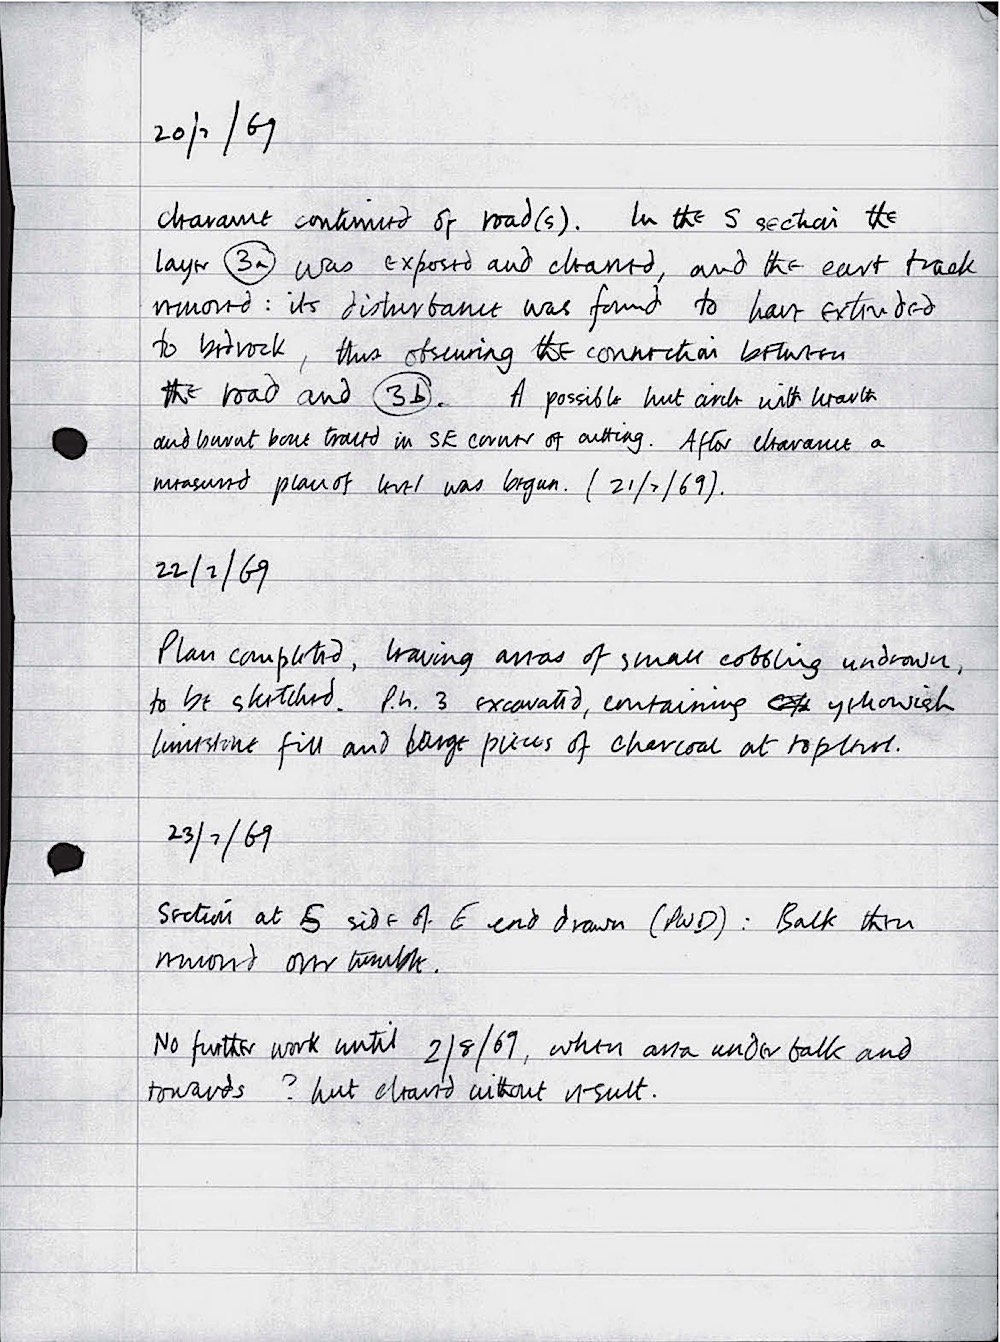 20/7/69
Clearance continued of road(s). In the S section the
layer 3a was exposed and cleaned, and the east track
removed: its disturbance was found to have extended
to bedrock, thus obscuring the connection between
the road and 3b. A possible hut circle with hearth
and burnt bone traced in SE corner of cutting. After clearance a
measured plan of level was begun. (21/7/69).
22/7/69
Plan completed, leaving areas of small cobbling undrawn,
to be sketched. P.h. 3 excavated, containing yellowish
limestone fill and large pieces of charcoal at top level.
23/7/69
Section at S side of E end drawn (PWD): Balk then
removed over tumble.
No further work until 2/8/69, when area under balk and
towards ? hut cleared without result.